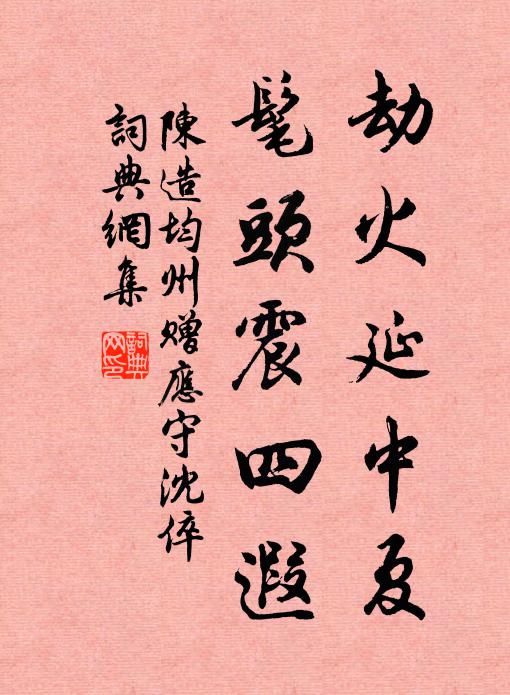 劫火延中夏
髦頭震四遐
陳造均州贈應守沈倅
詞典網集
詞典網印